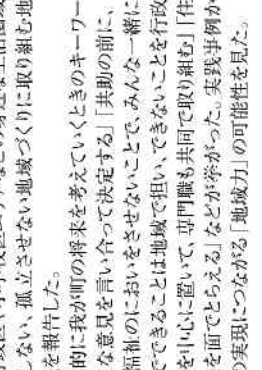 小学校区エリアなどの身近な生活圏域
しない、孤立させない地域づくりに取り組む地
を報告した。
的に我が町の将来を考えていくときのキーワー
な意見を言い合って決定する」「共助の前に、
福祉のにおいをさせないことで、みんな一緒に
でできることは地域で担い、できないことを行政
を中心に置いて、専門職も共同で取り組む」「住
を面でとらえる」などが挙がった。実践事例か
の実現につながる「地域力」の可能性を見た。